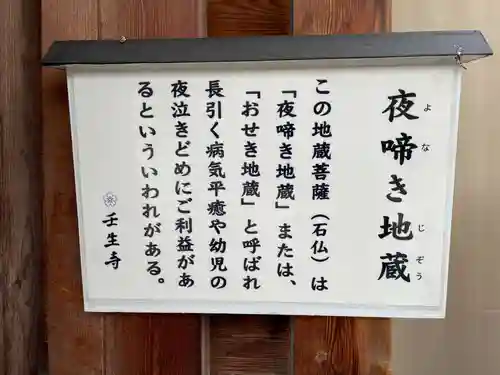 夜啼き地蔵
よな じぞう
この地蔵菩薩(石仏)は
「夜啼き地蔵」または、
「おせき地蔵」と呼ばれ
長引く病気平癒や幼児の
夜泣きどめにご利益があ
るといういわれがある。
壬生寺